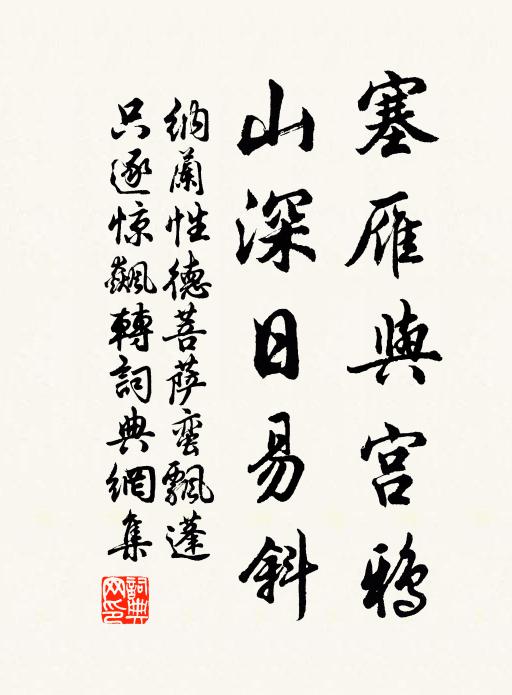 塞雁與宮鴉
山深日易斜
納蘭性德菩薩蠻飄蓬
只逐惊飆轉詞典網集
詞典網印